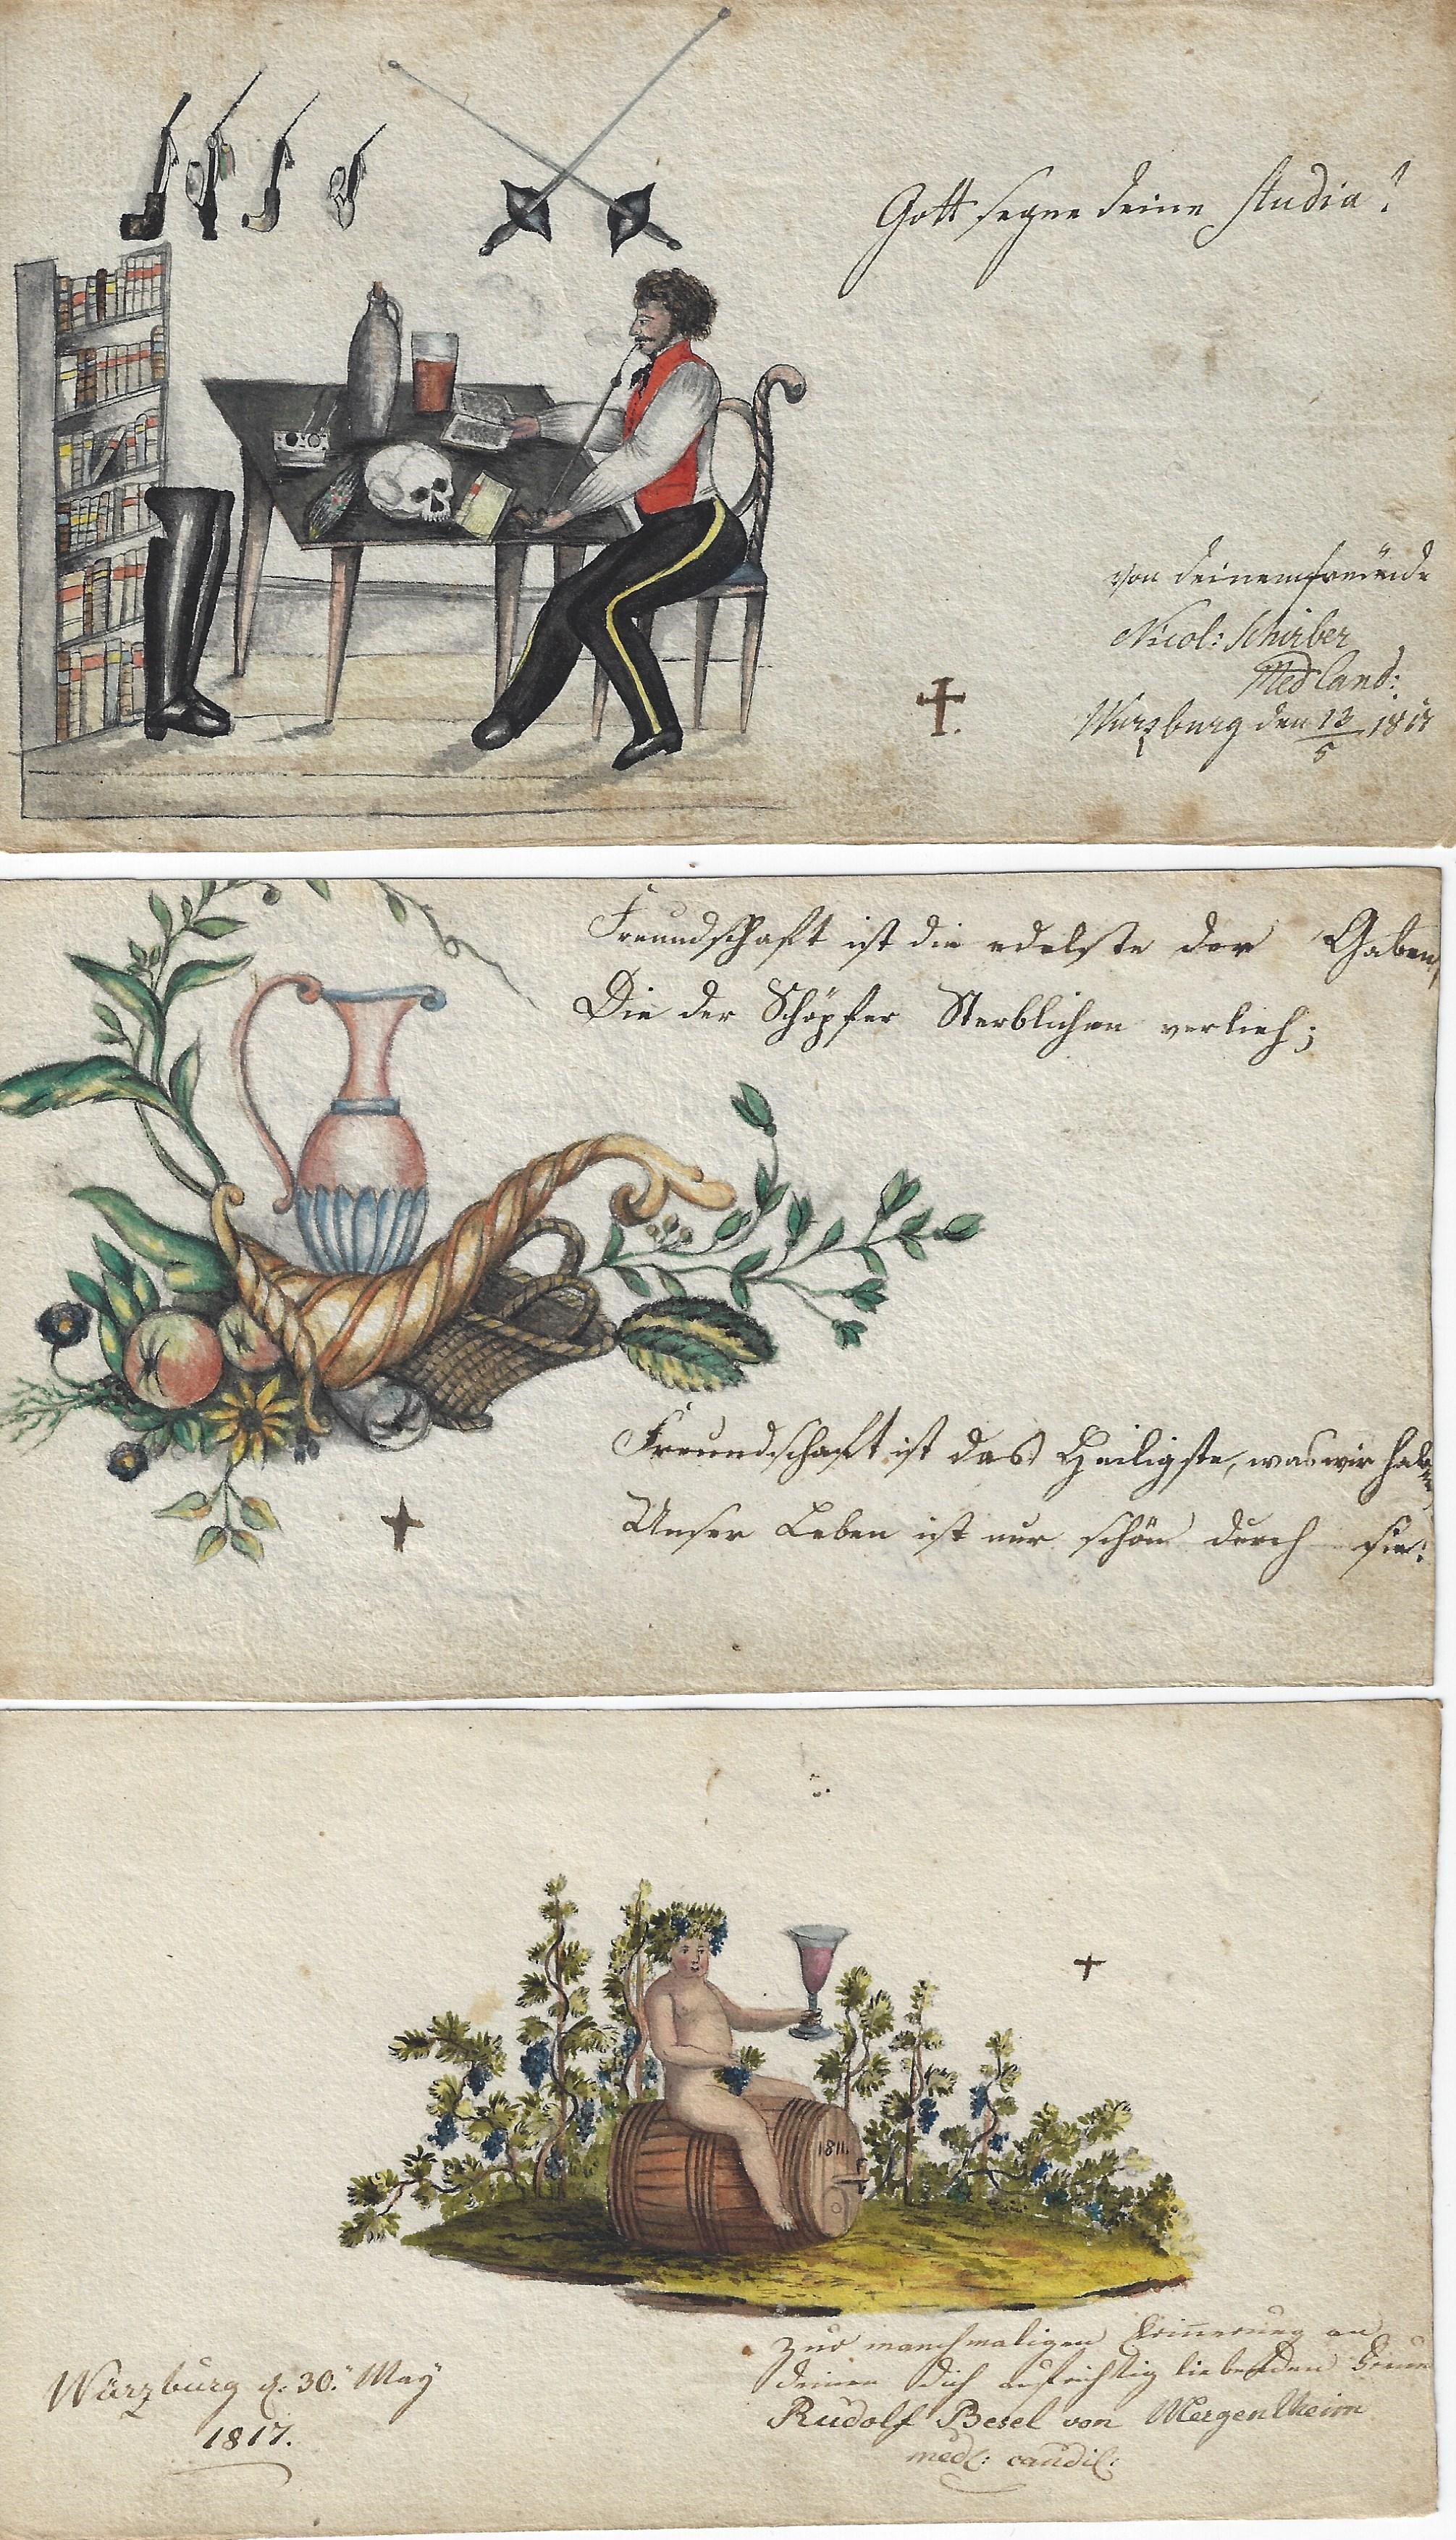 Gott segne deine Studia!
von deinem freunde
Nicol: Schirber
Med Cand:
Würzburg den 13/5 1817
Freundschaft ist die edelste der Gaben,
Die der Schöpfer Sterblichen verlieh;
Freundschaft ist das Heiligste, was wir haben
Unser Leben ist nur schön durch sie.
1811.
Zur manchmaligen Erinnerung an
deinen dich aufrichtig liebenden
Würzburg d. 30. May
1817.
Rudolf Besel von Mergentheim
med: candit: